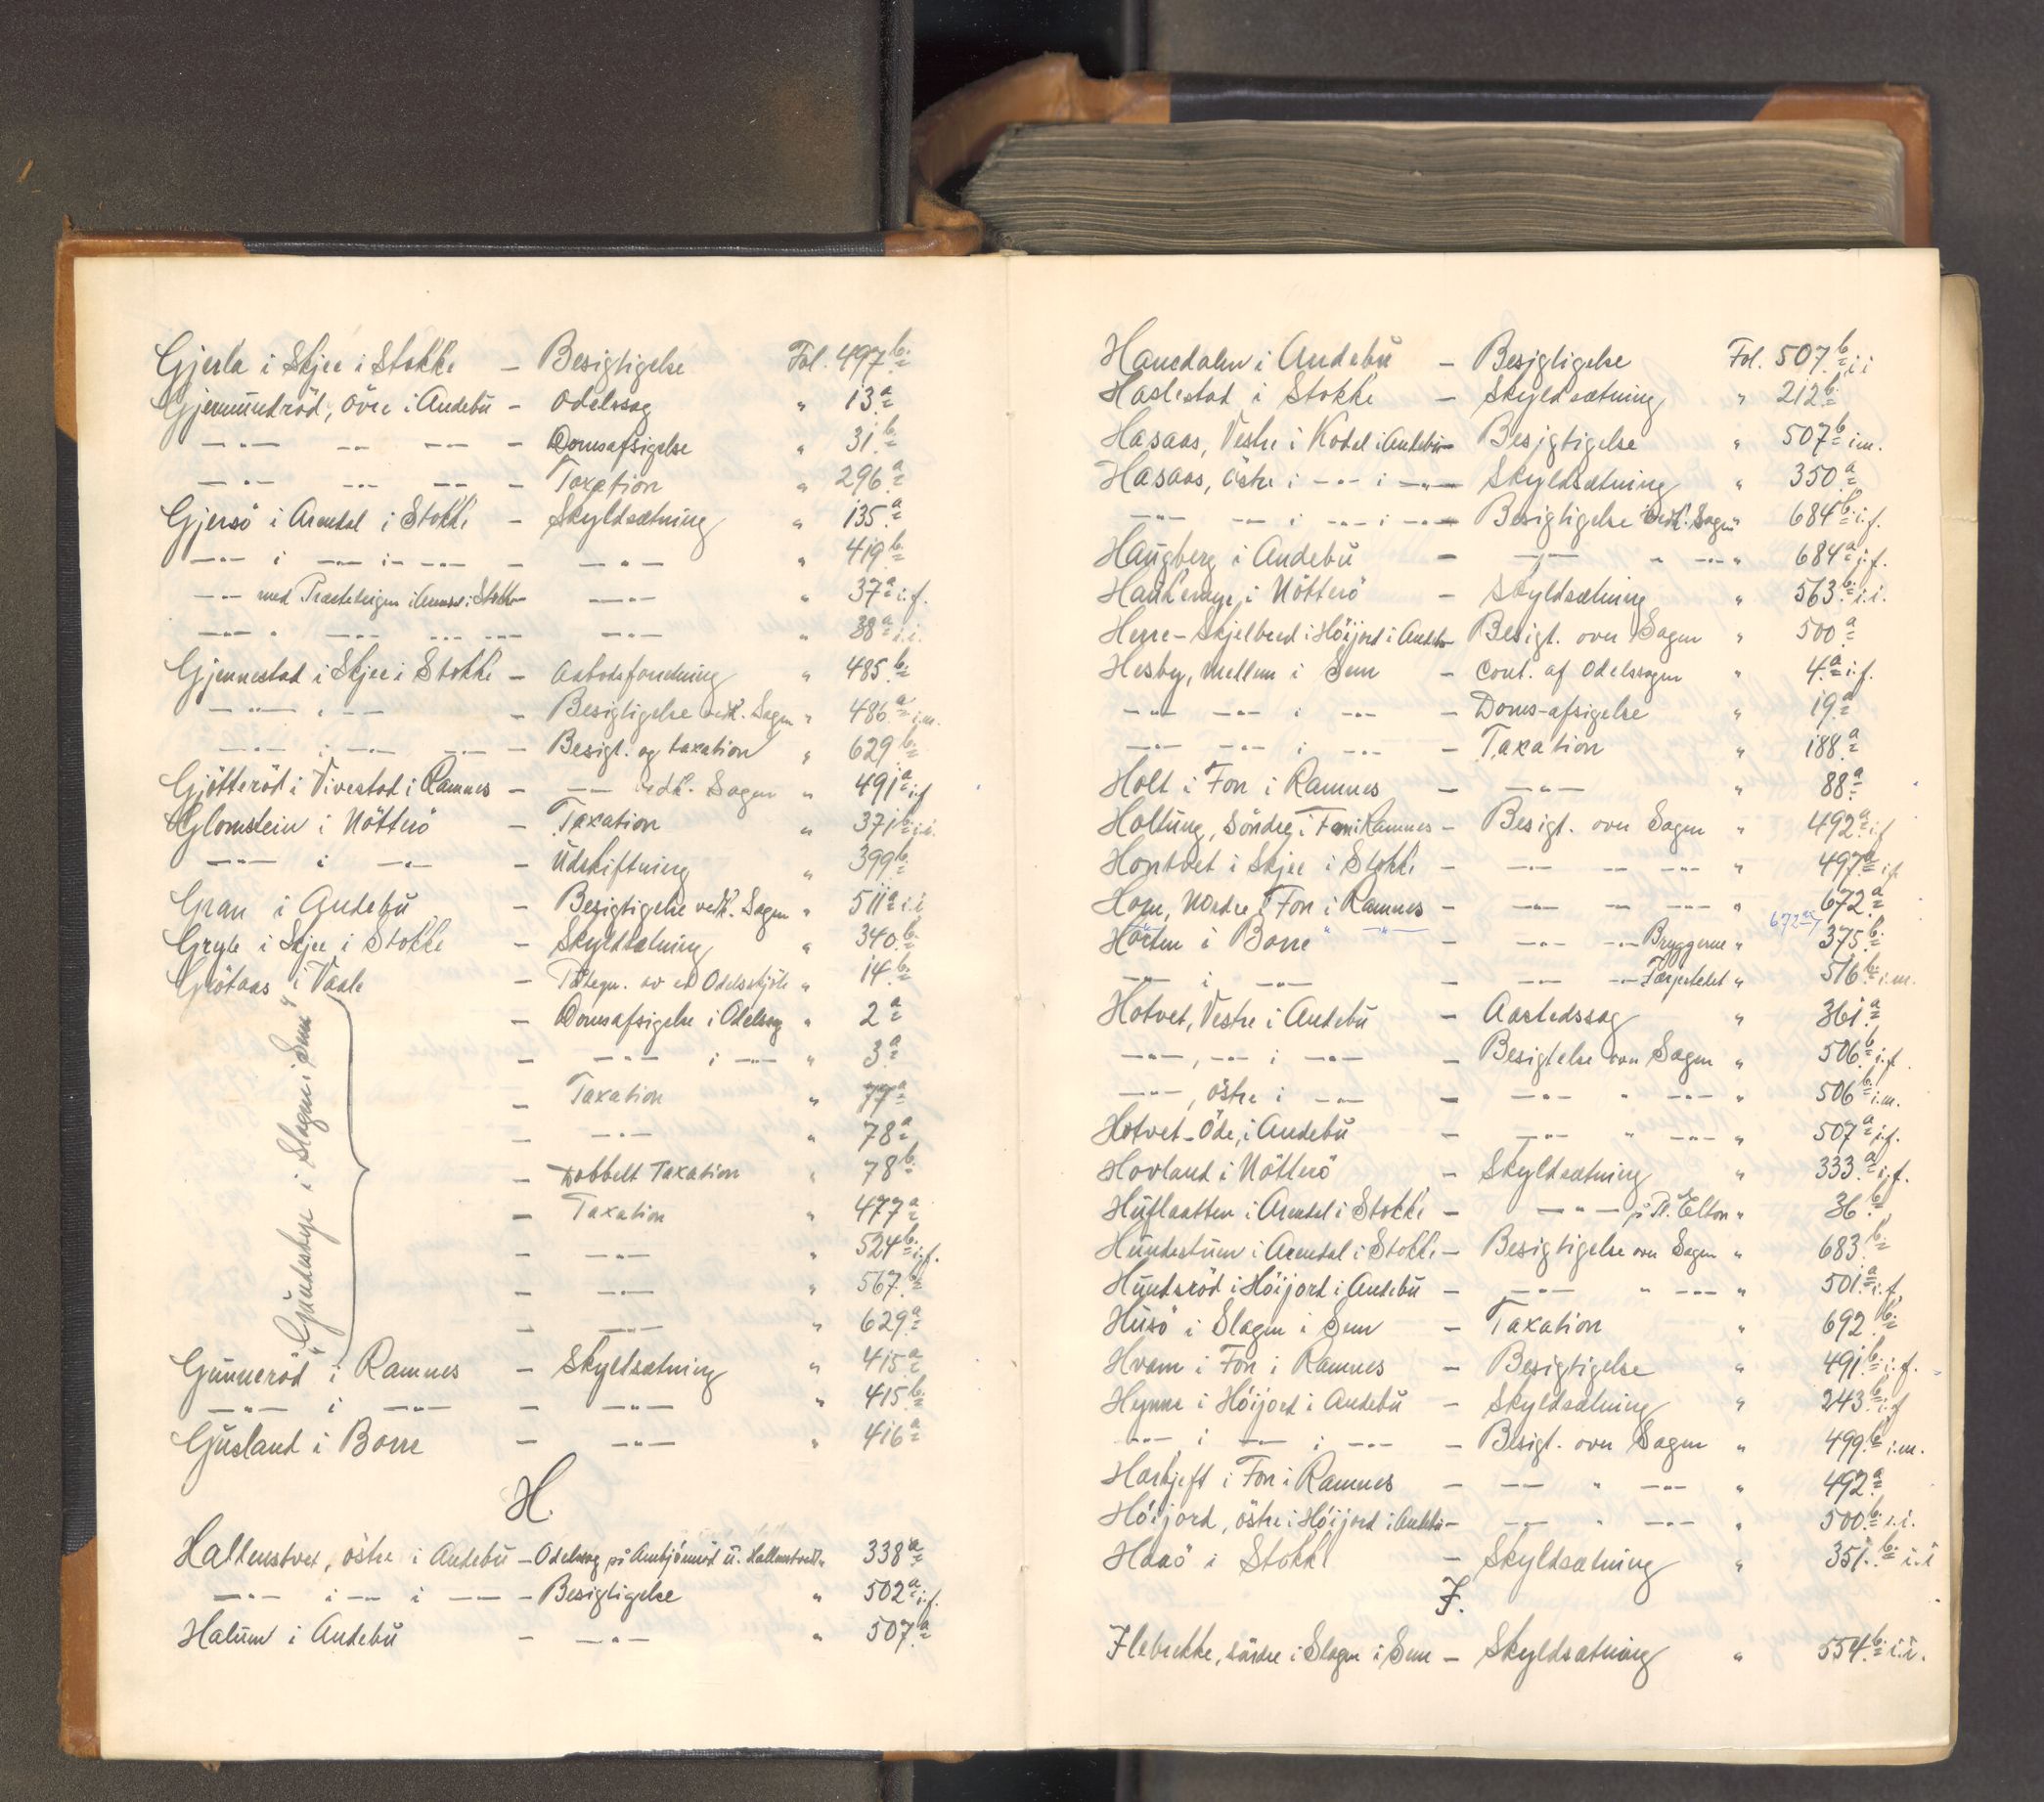 Gjerla i Skjee i Stokke – Besigtigelse Fol. 497 b
Gjermundröd, Övre i Andebu – Odelssag " 13 a
—"— —"— —"— – Domsafsigelse " 31 b
—"— —"— —"— – Taxation " 296 a
Gjersö i Arendal i Stokke – Skyldsætning " 135 a
—"— i —"— i —"— – —"— " 419 b
—"— med i Stokke —"— " 37 a i.f.
—"— " —"— —"— —"— —"— " 38 a i.i.
Gjennestad i Skjee i Stokke – Aabodsforretning " 485 b
—"— i —"— – Besigtigelse vedk. Sagen " 486 a i.m.
—"— i —"— —"— – Besigt. og taxation " 629 b
Gjötteröd i Vivestad i Ramnes – —"— vedk. Sagen " 491 a i.f
Glomstein i Nötterö – Taxation " 371 b i.i.
—"— i —"— – Udskiftning " 399 b
Gran i Andebu – Besigtigelse vedk. Sagen " 511 a i.i
Gryte i Skjee i Stokke – Skyldsætning " 340 b
Grötaas i Vaale – Påtegn. av et Odelsskjöte " 14 b
"Gundersbye i Slagen i Sem"
– Domsafsigelse i Odelssag " 2 a
– —"— i —"— " 3 a
– Taxation " 77 a
– —"— " 78 a
– Dobbelt Taxation " 78 b
– Taxation " 477 a
– —"— " 524 b i.f.
– —"— " 567 b
– —"— " 629 a
Gunneröd i Ramnes – Skyldsætning " 415 a
—"— i —"— – —"— " 415 b
Gusland i Borre – —"— " 416 a
H.
Hallenstvet, östre i Andebu – Odelssag på Arnbjörnröd u. Hallenstvedt " 338 a
—"— i —"— i —"— – Besigtigelse " 502 a i.f.
Halum i Andebu – —"— " 507 a
Hanedalen i Andebu – Besigtigelse Fol. 507 b i.i
Haslestad i Stokke – Skyldsætning " 212 b
Hasaas, Vestre i Kodal i Andebu – Besigtigelse " 507 b i.m.
Hasaas, Östre i —"— i —"— Skyldsætning " 350 a
—"— —"— i —"— i —"— Besigtigelse vedk. Sagen " 684 b i.f.
Haugberg i Andebu – —"— " —"— " 684 a i.f.
i Nötterö – Skyldsætning " 563 b i.i.
Herre-Skjelbred i Höijord i Andebu Besigt. over Sagen " 500 a
Hesby, mellem i Sem – Cont. af Odelssagen " 4 a i.f.
—"— —"— i —"— – Doms-afsigelse " 19 a
—"— —"— i —"— – Taxation " 188 a
Holt i Fon i Ramnes – —"— " 88 a
Holtung, Söndre i Fon i Ramnes – Besigt. over Sagen " 492 a i.f
Hontvet i Skjee i Stokke – —"— —"— —"— " 497 a i.f
Horn, Nordre i Fon i Ramnes – —"— —"— " 672 a
" —"— 672 a
Horten i Borre – —"— —"— Bryggerne " 375 b
—"— i —"— – —"— —"— " 516 b i.m.
Hotvet, Vestre i Andebu – Aastedssag " 361 a
—"—, —"— i —"— – Besigtelse over Sagen " 506 b i.f.
—"—, östre i —"— – —"— " —"— " 506 b i.m.
Hotvet-Öde, i Andebu – —"— " —"— " 507 a i.f.
Hovland i Nötterö – Skyldsætning " 333 a i.f.
Huflaatten i Arendal i Stokke – —"— på Pl. Elton " 36 b
i Arendal i Stokke – Besigtigelse over Sagen " 683 b
Hundsröd i Höijord i Andebu – —"— " —"— " 501 a i.f.
Husö i Slagen i Sem – Taxation " 692 b
Hvam i Fon i Ramnes – Besigtigelse " 491 b i.f.
Hynne i Höijord i Andebu – Skyldsætning " 243 b i.f
—"— i —"— i —"— – Besigt. over Sagen " 499 b i.m.
i Fon i Ramnes – —"— " —"— " 492 a
Höijord, östre i Höijord i Andebu – —"— " —"— " 500 b i.i.
Haaö i Stokke – Skyldsætning " 351 b i.i
I.
Ilebrekke, söndre i Slagen i Sem – Skyldsætning " 554 b i.i.